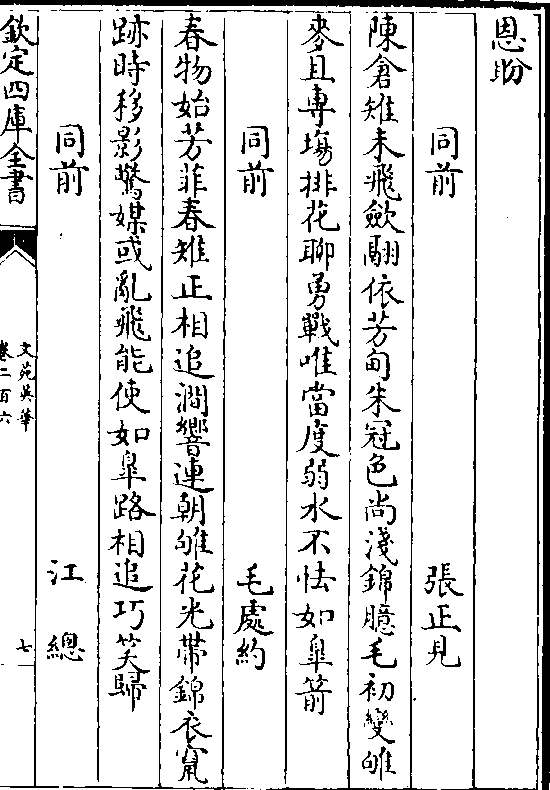 恩盼
同前　張正見
陳倉雉未飛歛翮依芳甸朱冠色尚淺錦臆毛初變雊
麥且專塲排花聊勇戰唯當度弱水不怯如臯箭
同前　毛處約
春物始芳菲春雉正相追澗響連朝雊花光帶錦衣竄
跡時移影驚媒或亂飛能使如臯路相追巧笑歸
同前　江總
欽定四庫全書
文苑英華
卷二百六
七